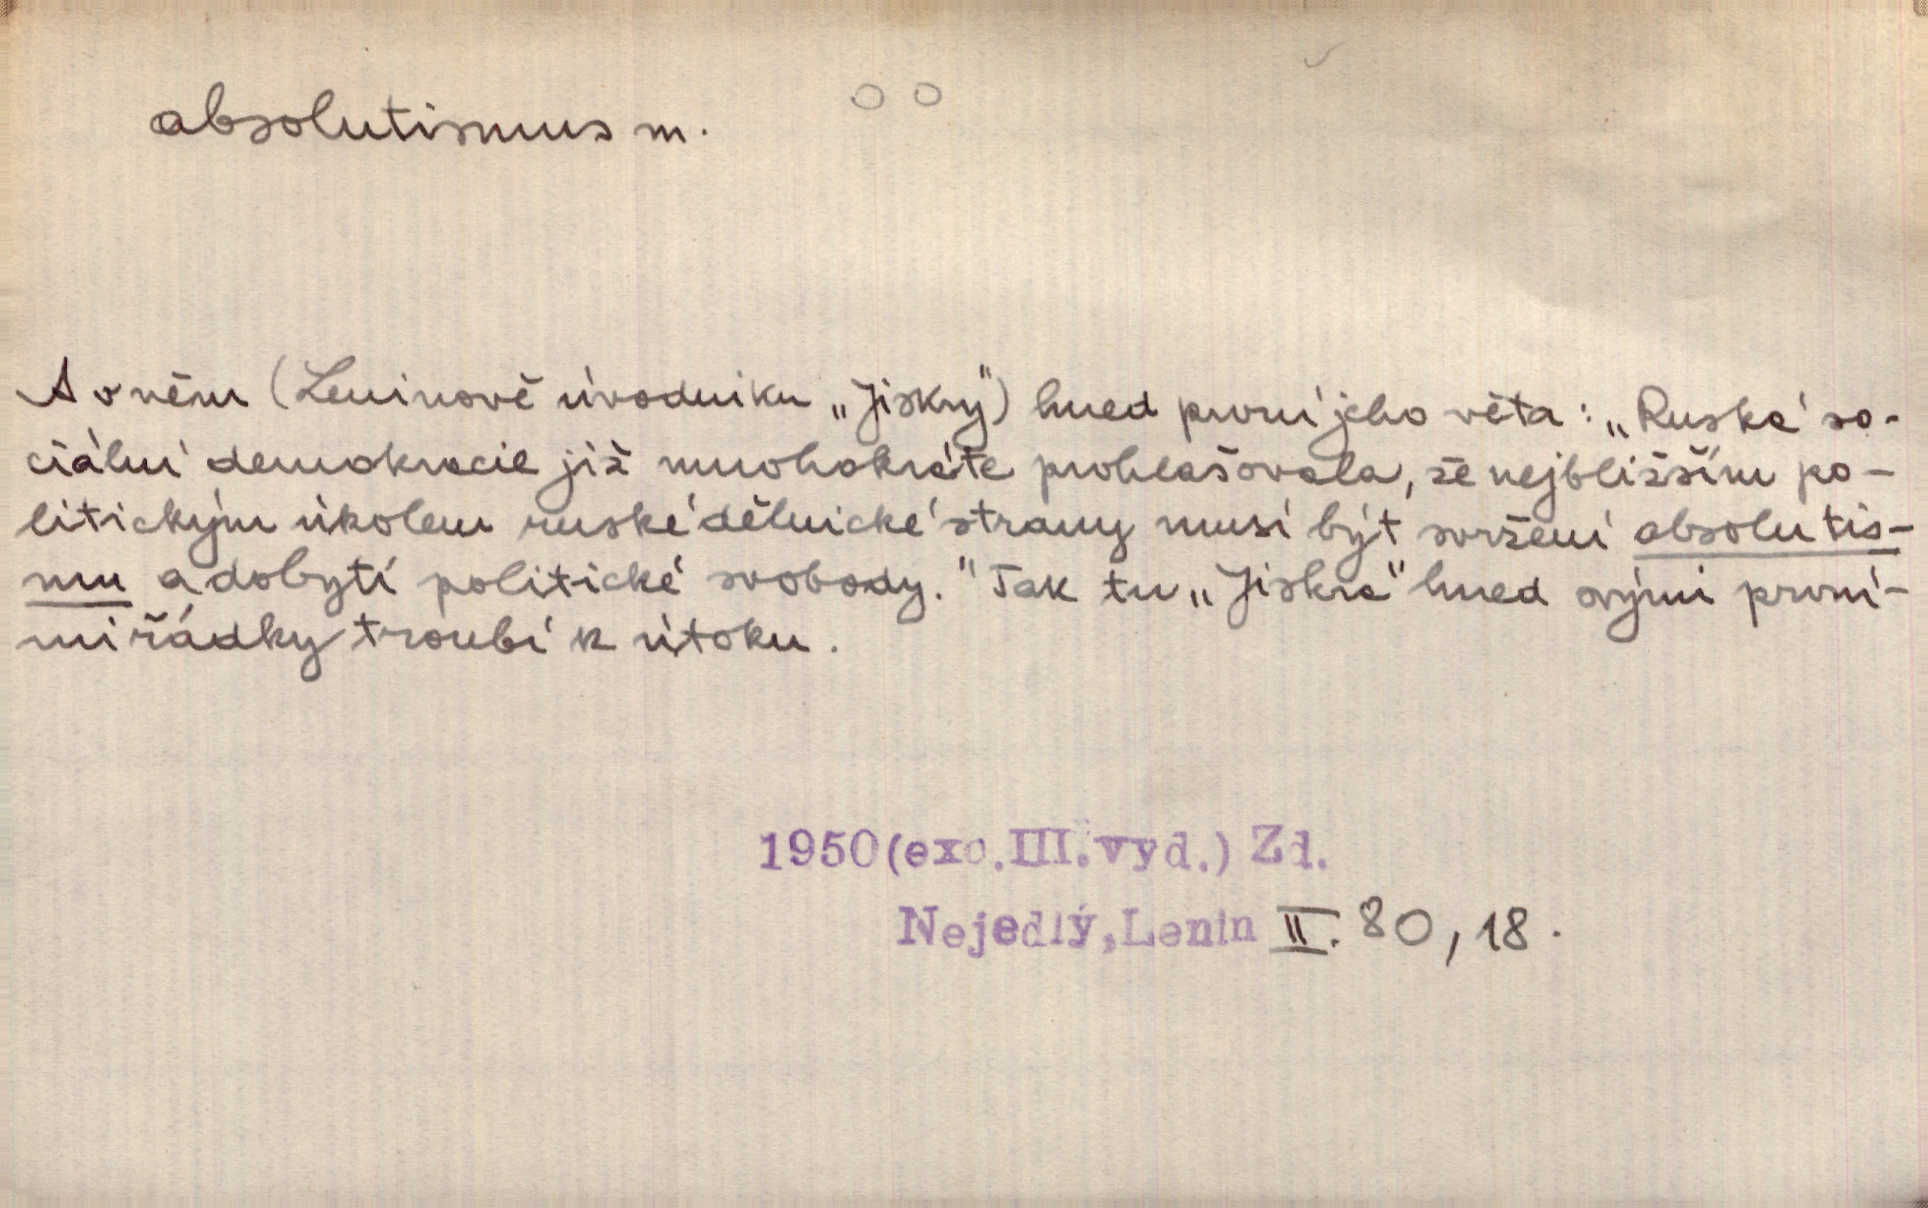 absolutismus m.
A v něm (Leninově úvodníku „Jiskry") hned první jeho věta: „Ruská so-
ciální demokracie již mnohokráte prohlašovala, že nejbližším po-
litickým úkolem ruské dělnické strany musí být svržení absolutis-
mu a dobytí politické svobody." Tak tu „Jiskra" hned svými první-
mi řádky troubí k útoku.
1950(exc.III.vyd.) Zd.
Nejedlý,Lenin II. 80, 18.